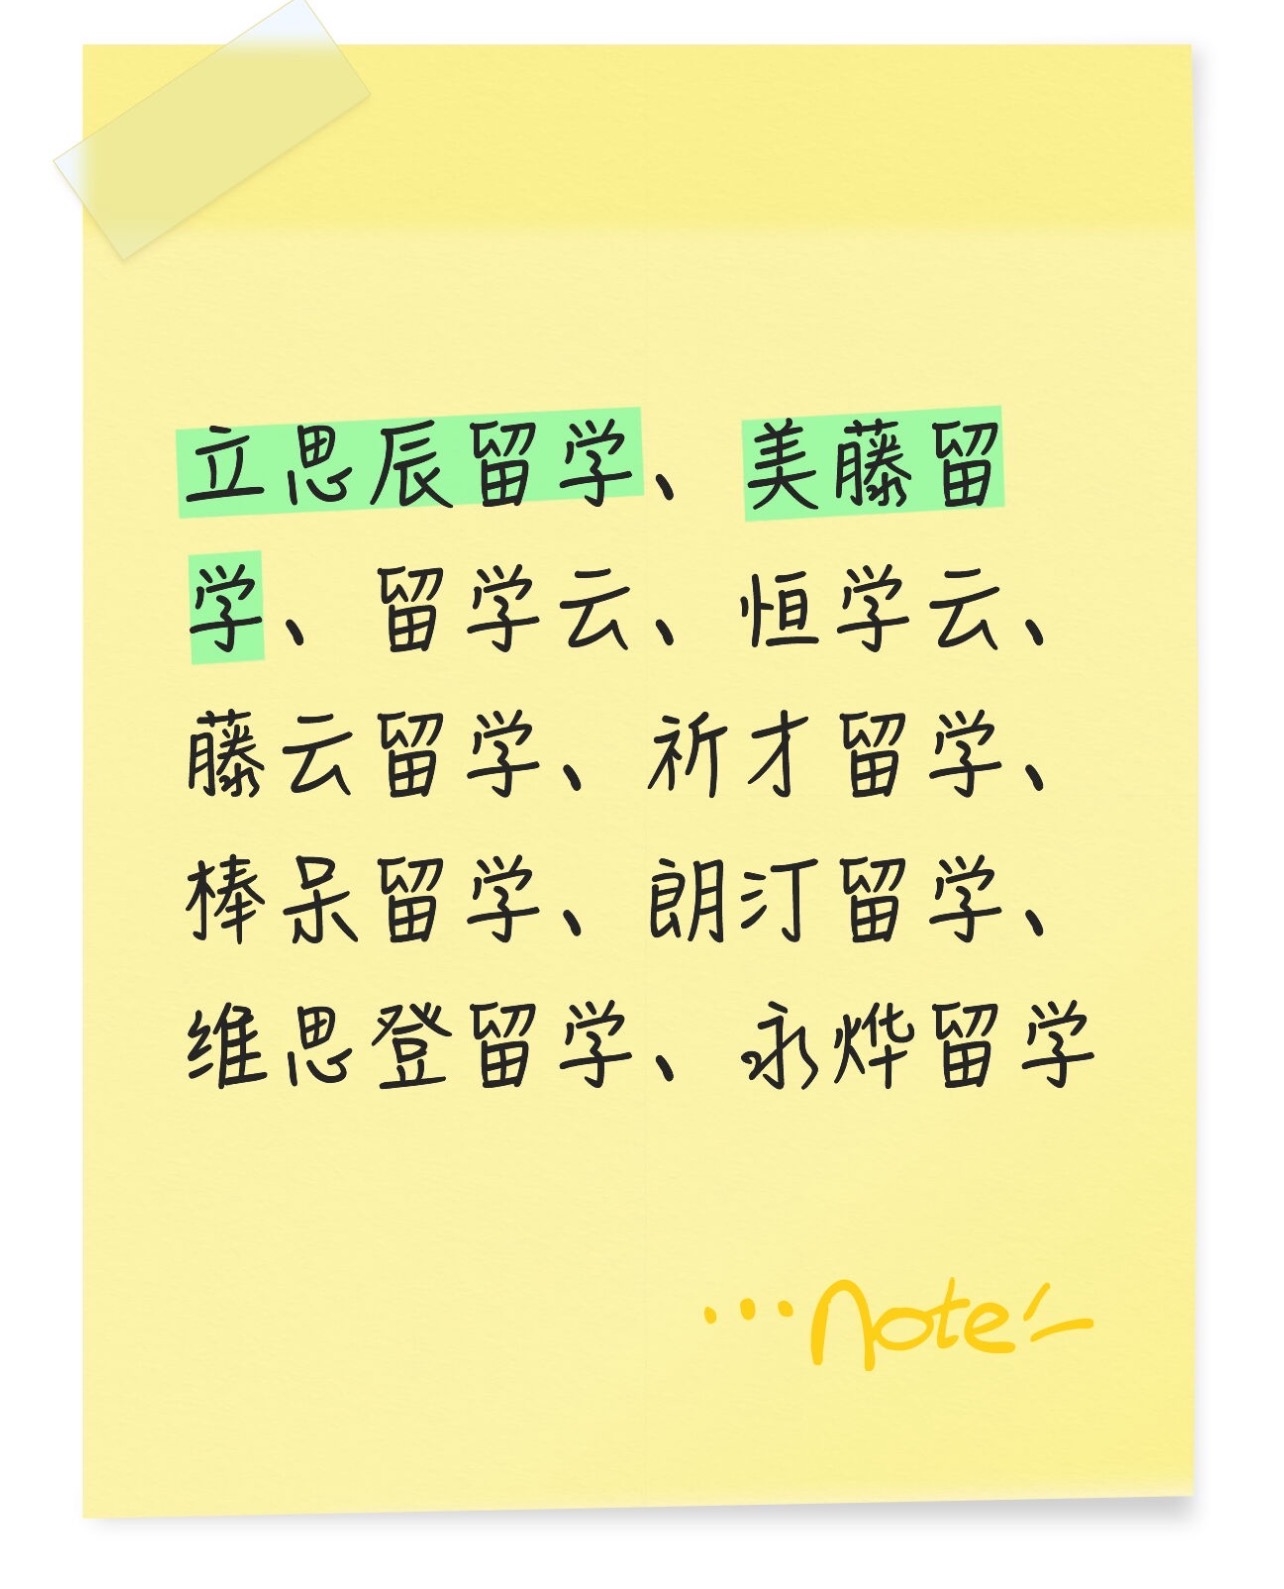 立思辰留学、美藤留
学、留学云、恒学云、
藤云留学、祈才留学、
棒呆留学、朗汀留学、
维思登留学、永烨留学
...note